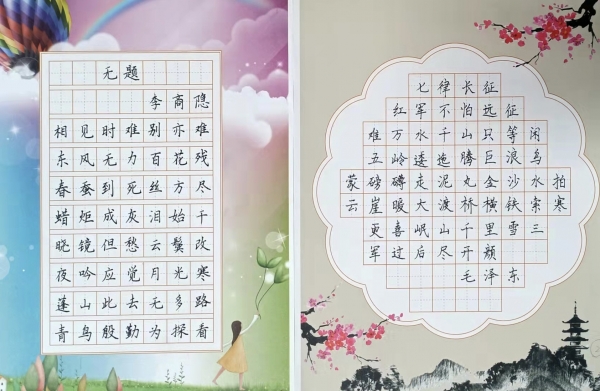 无题
李商隐
相见时难别亦难
东风无力百花残
春蚕到死丝方尽
蜡炬成灰泪始干
晓镜但愁云鬓改
夜吟应觉月光寒
蓬山此去无多路
青鸟殷勤为探看
七律长征
红军不怕远征
难万水千山只等闲
五岭逶迤腾巨浪乌
蒙磅礴走泥丸金沙水拍
云崖暖大渡桥横铁索寒
更喜岷山千里雪三
军过后尽开颜
毛泽东